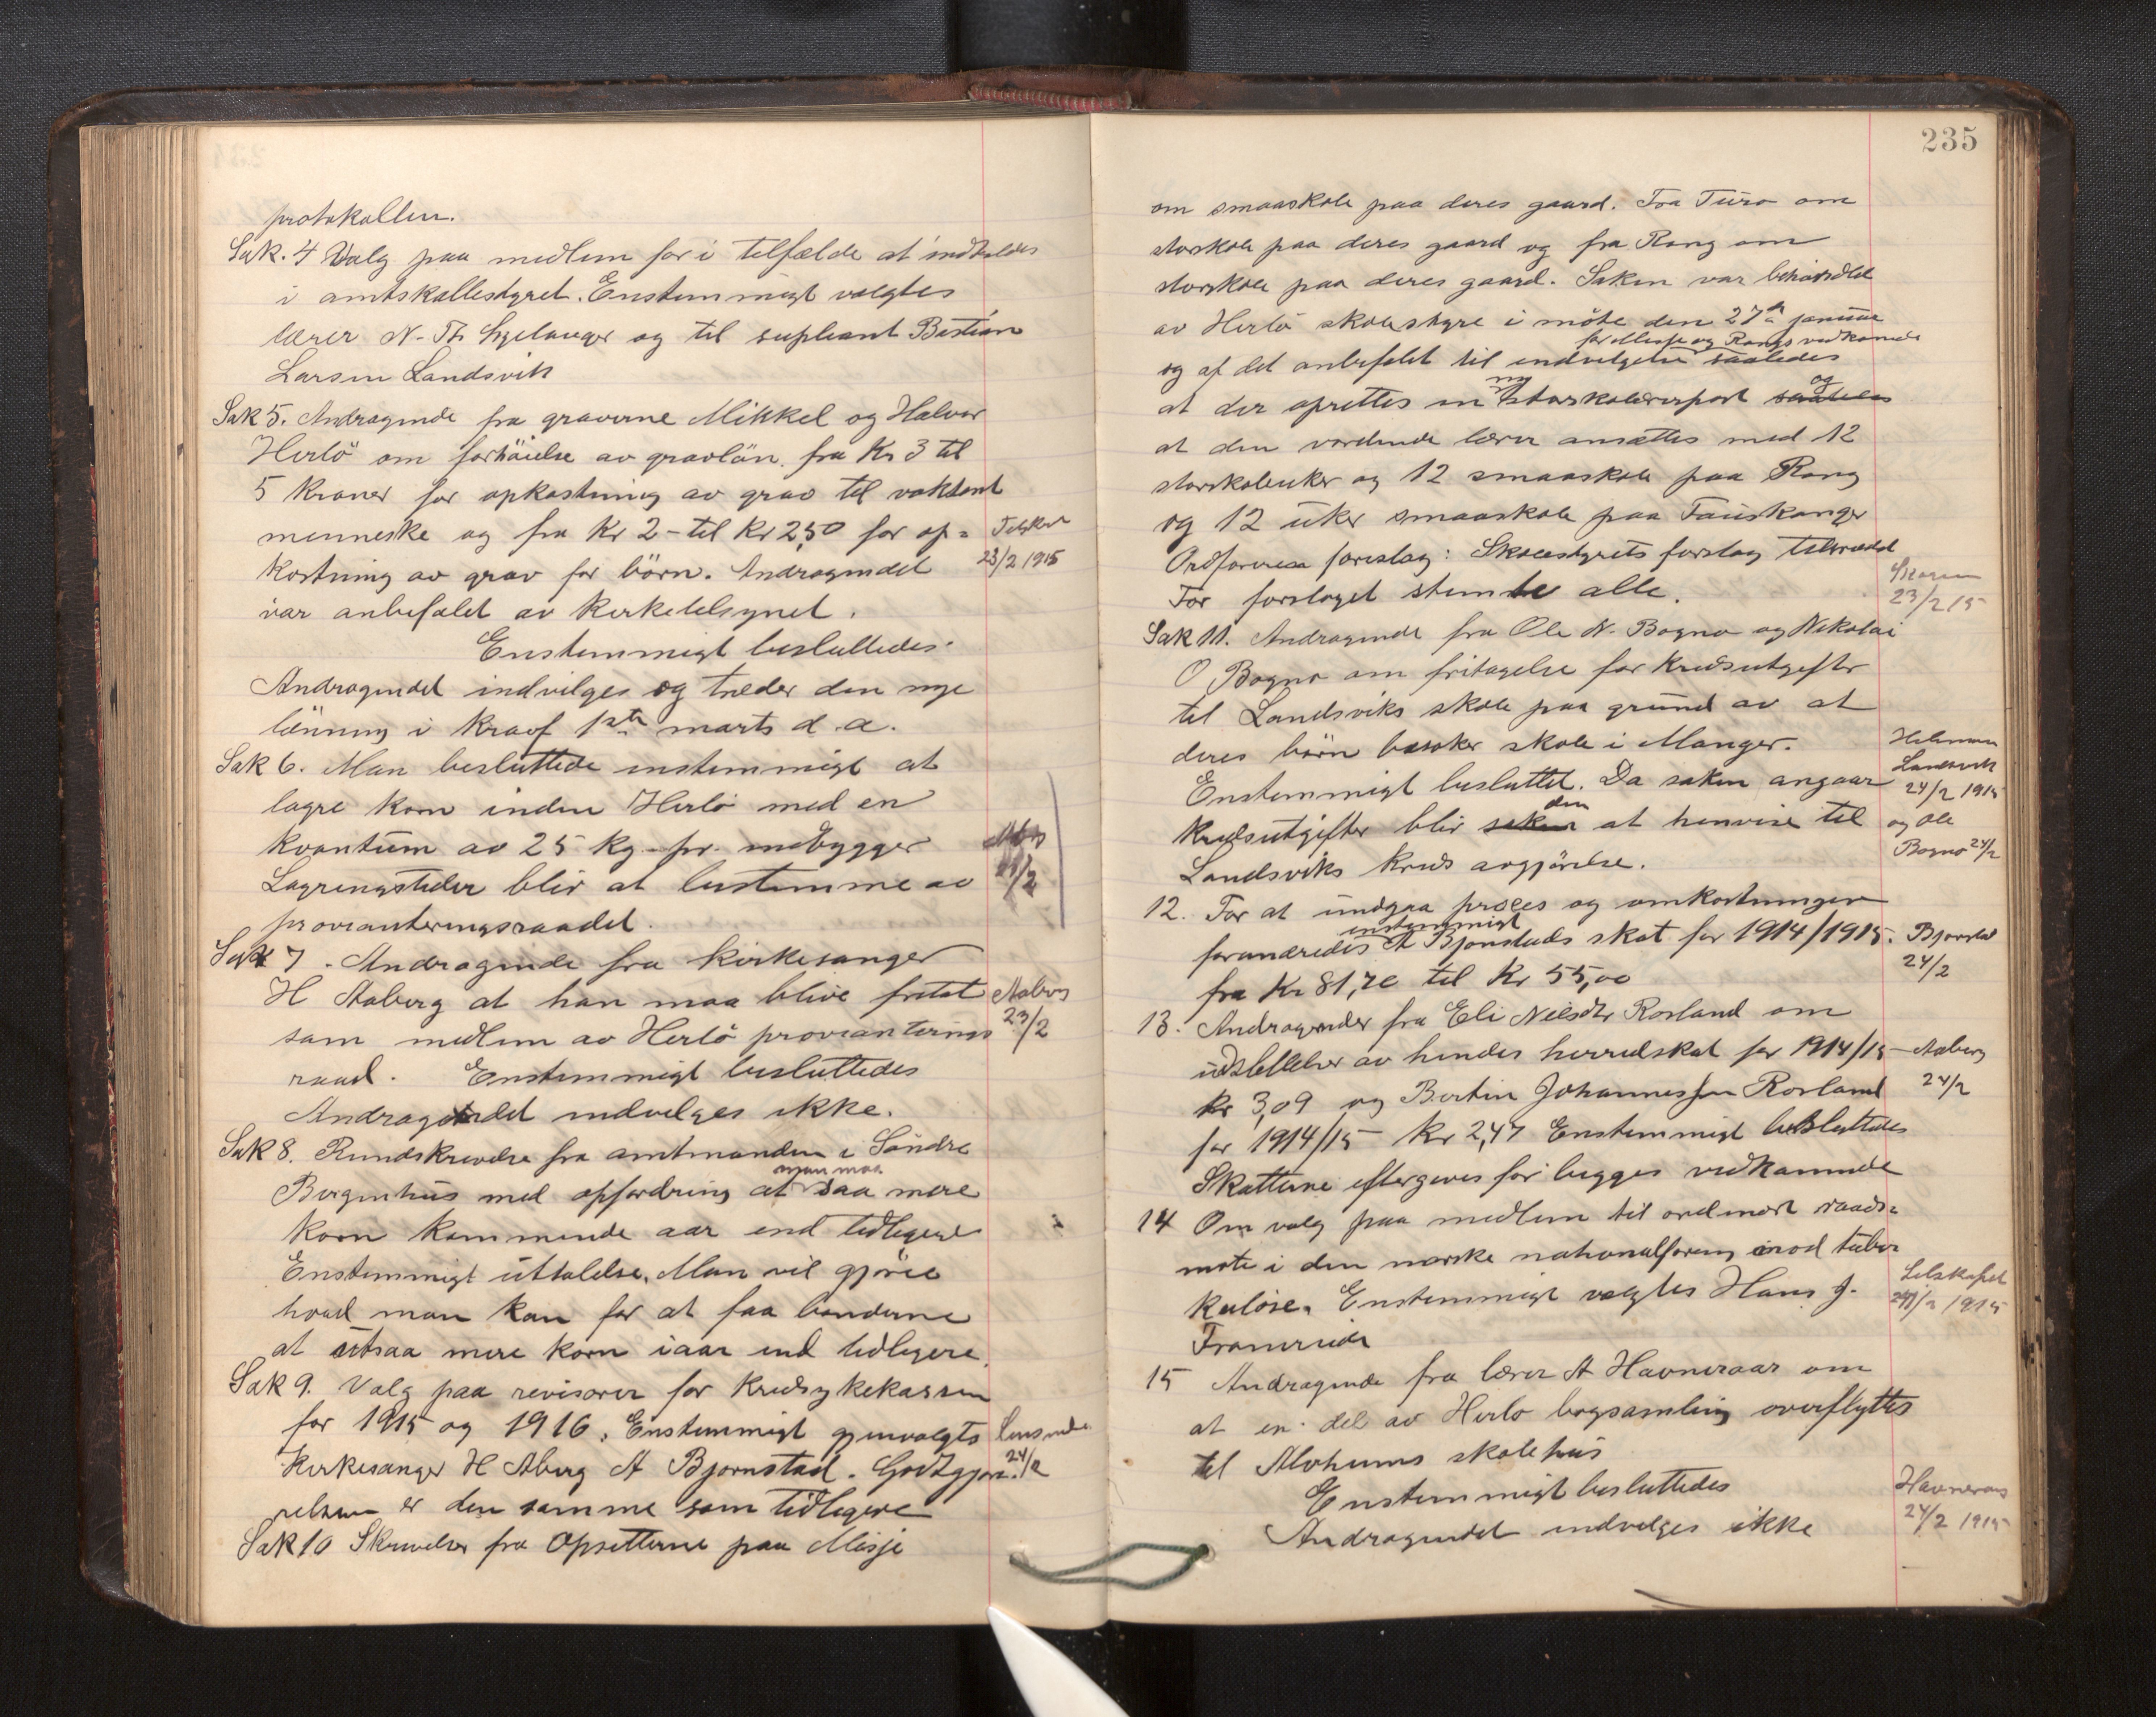 protokollen.
Sak. 4 Valg paa medlem for i tilfælde at indkaldes
i amtskollestyret. Enstemmigt valgtes
lærer N. Th. Hjelanger og til supleant Bastian
Larsen Landsvik
Sak 5. Andragende fra graverne Mikkel og Halvor
Herlö om forhöielse av gravlön fra Kr 3 til
5 kroner for opkastning av grav til voksent
menneske og fra Kr 2 - til Kr 2,50 for op=
kastning av grav for börn. Andragendet
var anbefalet av Kirketilsynet.
23/2 1915
Enstemmigt besluttedes.
Andragendet indvilges og træder den nye
lönning i kraft 1ste marts d. a.
Sak 6. Man besluttede enstemmigt at
lagre korn inden Herlö med en
kvantum av 25 kg. pr. indbygger
Lagringsteder blir at bestemme av
provianteringsraadet.
Sak 7. Andragende fra kirkesanger
H Aaberg at han maa blive fritat
som medlem av Herlö provianterings
raad. Enstemmigt besluttedes
Andragendet indvilges ikke.
Aaberg
23/2
Sak 8. Rundskrivelse fra amtmanden i Söndre
Bergenhus med opfordring at man maa saa mere
korn kommende aar end tidligere
Enstemmigt uttalelse. Man vil gjöre
hvad man kan for at faa bönderne
at utsaa mere korn iaar end tidligere.
Sak 9. Valg paa revisorer for Kredsykekassen
for 1915 og 1916. Enstemmigt gjenvalgtes
Kirkesanger H Aberg A Bjornstad. Godtgjö-
relsen er den samme som tidligere
24/2
Sak 10 Skrivelser fra Opsitterne paa Misje
235
om smaaskole paa deres gaard. Fra Turö om
storskole paa deres gaard og fra Rong om
storskole paa deres gaard. Saken var behandlet
av Herlö skolestyre i möte den 27de januar
og af det anbefalet til indvilgelse for Misje og Rongs vedkomende saaledes
at der oprettes en ny storskolelærerpost og saaledes
at den vordende lærer ansættes med 12
storskoleuker og 12 smaaskole paa Rong
og 12 uker smaaskole paa Tauskanger
Ordförerens foreslag: Skolestyrets forslag tiltrædes
For forslaget stemte alle.
23/2 15
Sak 11. Andragende fra Ole N. Bogno og Nikolai
O Bogno om fritagelse for Kredsutgifter
til Landsviks skole paa grund av at
deres börn besöker skole i Manger.
Enstemmigt besluttet. Da saken angaar
Kredsutgifter blir saken den at henvise til
Landsviks kreds avgjörelse.
Landsvik
24/2 1915
og Ole
Bogno 24/2
12. For at undgaa proces og omkostninger
forandredes enstemmigt A Bjornstads skat for 1914/1915.
fra Kr 81,70 til Kr 55,00
Bjornstad
24/2
13. Andragender fra Eli Nilsdtr Rosland om
utslettelse av hendes herredskat for 1914/15
kr 3,09 og Bertin Johannessen Rosland
for 1914/15 Kr 2,47 Enstemmigt besluttedes
Skatterne eftergives for begges vedkomende
Aaberg
24/2
14 Om valg paa medlem til ordinært raads=
möte i den norske nationalforening mod tuber
kulose. Enstemmigt valgtes Hans J.
Fromreide
Selskapet
24/2 1915
15 Andragende fra lærer A Havneraas om
at en del av Herlo bogsamling overflyttes
til Alvheims skolehus
Enstemmigt besluttedes
Andragendet indvilges ikke
Havneraas
24/2 1915